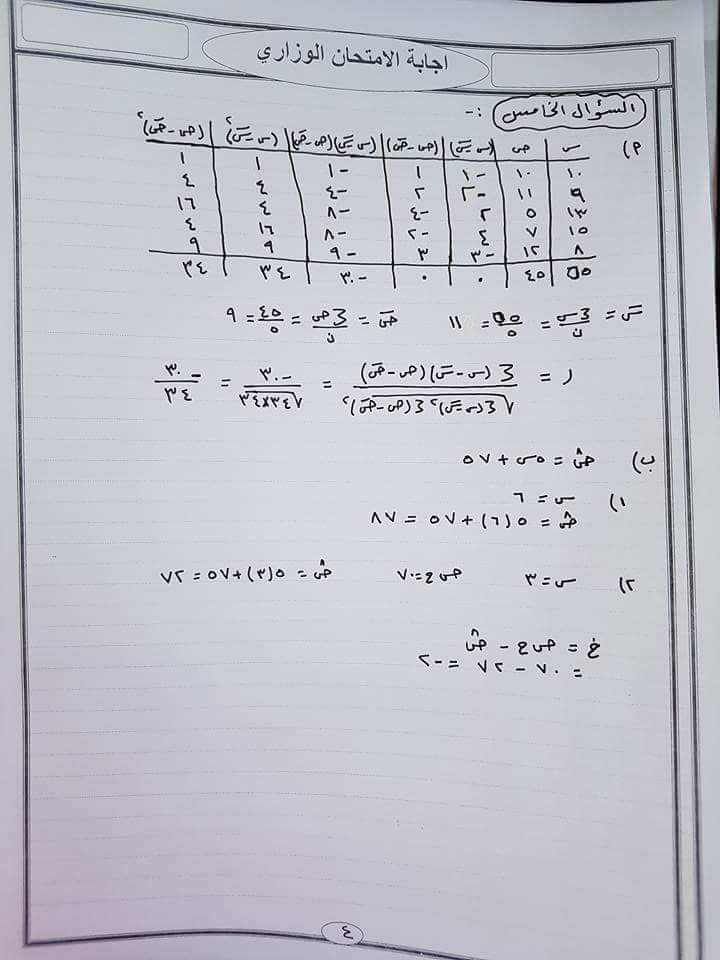 اجابة الامتحان الوزاري
السؤال الخامس :-
م) س | ص | (س - س̄) | (ص - ص̄) | (س - س̄)(ص - ص̄) | (س - س̄)² | (ص - ص̄)²
١٠ | ١٠ | -١ | ١ | -١ | ١ | ١
٩ | ١١ | -٢ | ٢ | -٤ | ٤ | ٤
١٣ | ٥ | ٢ | -٤ | -٨ | ٤ | ١٦
١٥ | ٧ | ٤ | -٢ | -٨ | ١٦ | ٤
٨ | ١٢ | -٣ | ٣ | -٩ | ٩ | ٩
٥٥ | ٤٥ | ٠ | ٠ | -٣٠ | ٣٤ | ٣٤
س̄ = Σس/ن = ٥٥/٥ = ١١ ص̄ = Σص/ن = ٤٥/٥ = ٩
ر = Σ(س - س̄)(ص - ص̄) / √(Σ(س - س̄)² Σ(ص - ص̄)²) = -٣٠ / √(٣٤×٣٤) = -٣٠ / ٣٤
ب) ص^ = ٥س + ٥٧
١) س = ٦
ص^ = ٥(٦) + ٥٧ = ٨٧
٢) س = ٣ ص ح = ٧٠ ص^ = ٥(٣) + ٥٧ = ٧٢
خ = ص ح - ص^
= ٧٠ - ٧٢ = -٢
٤